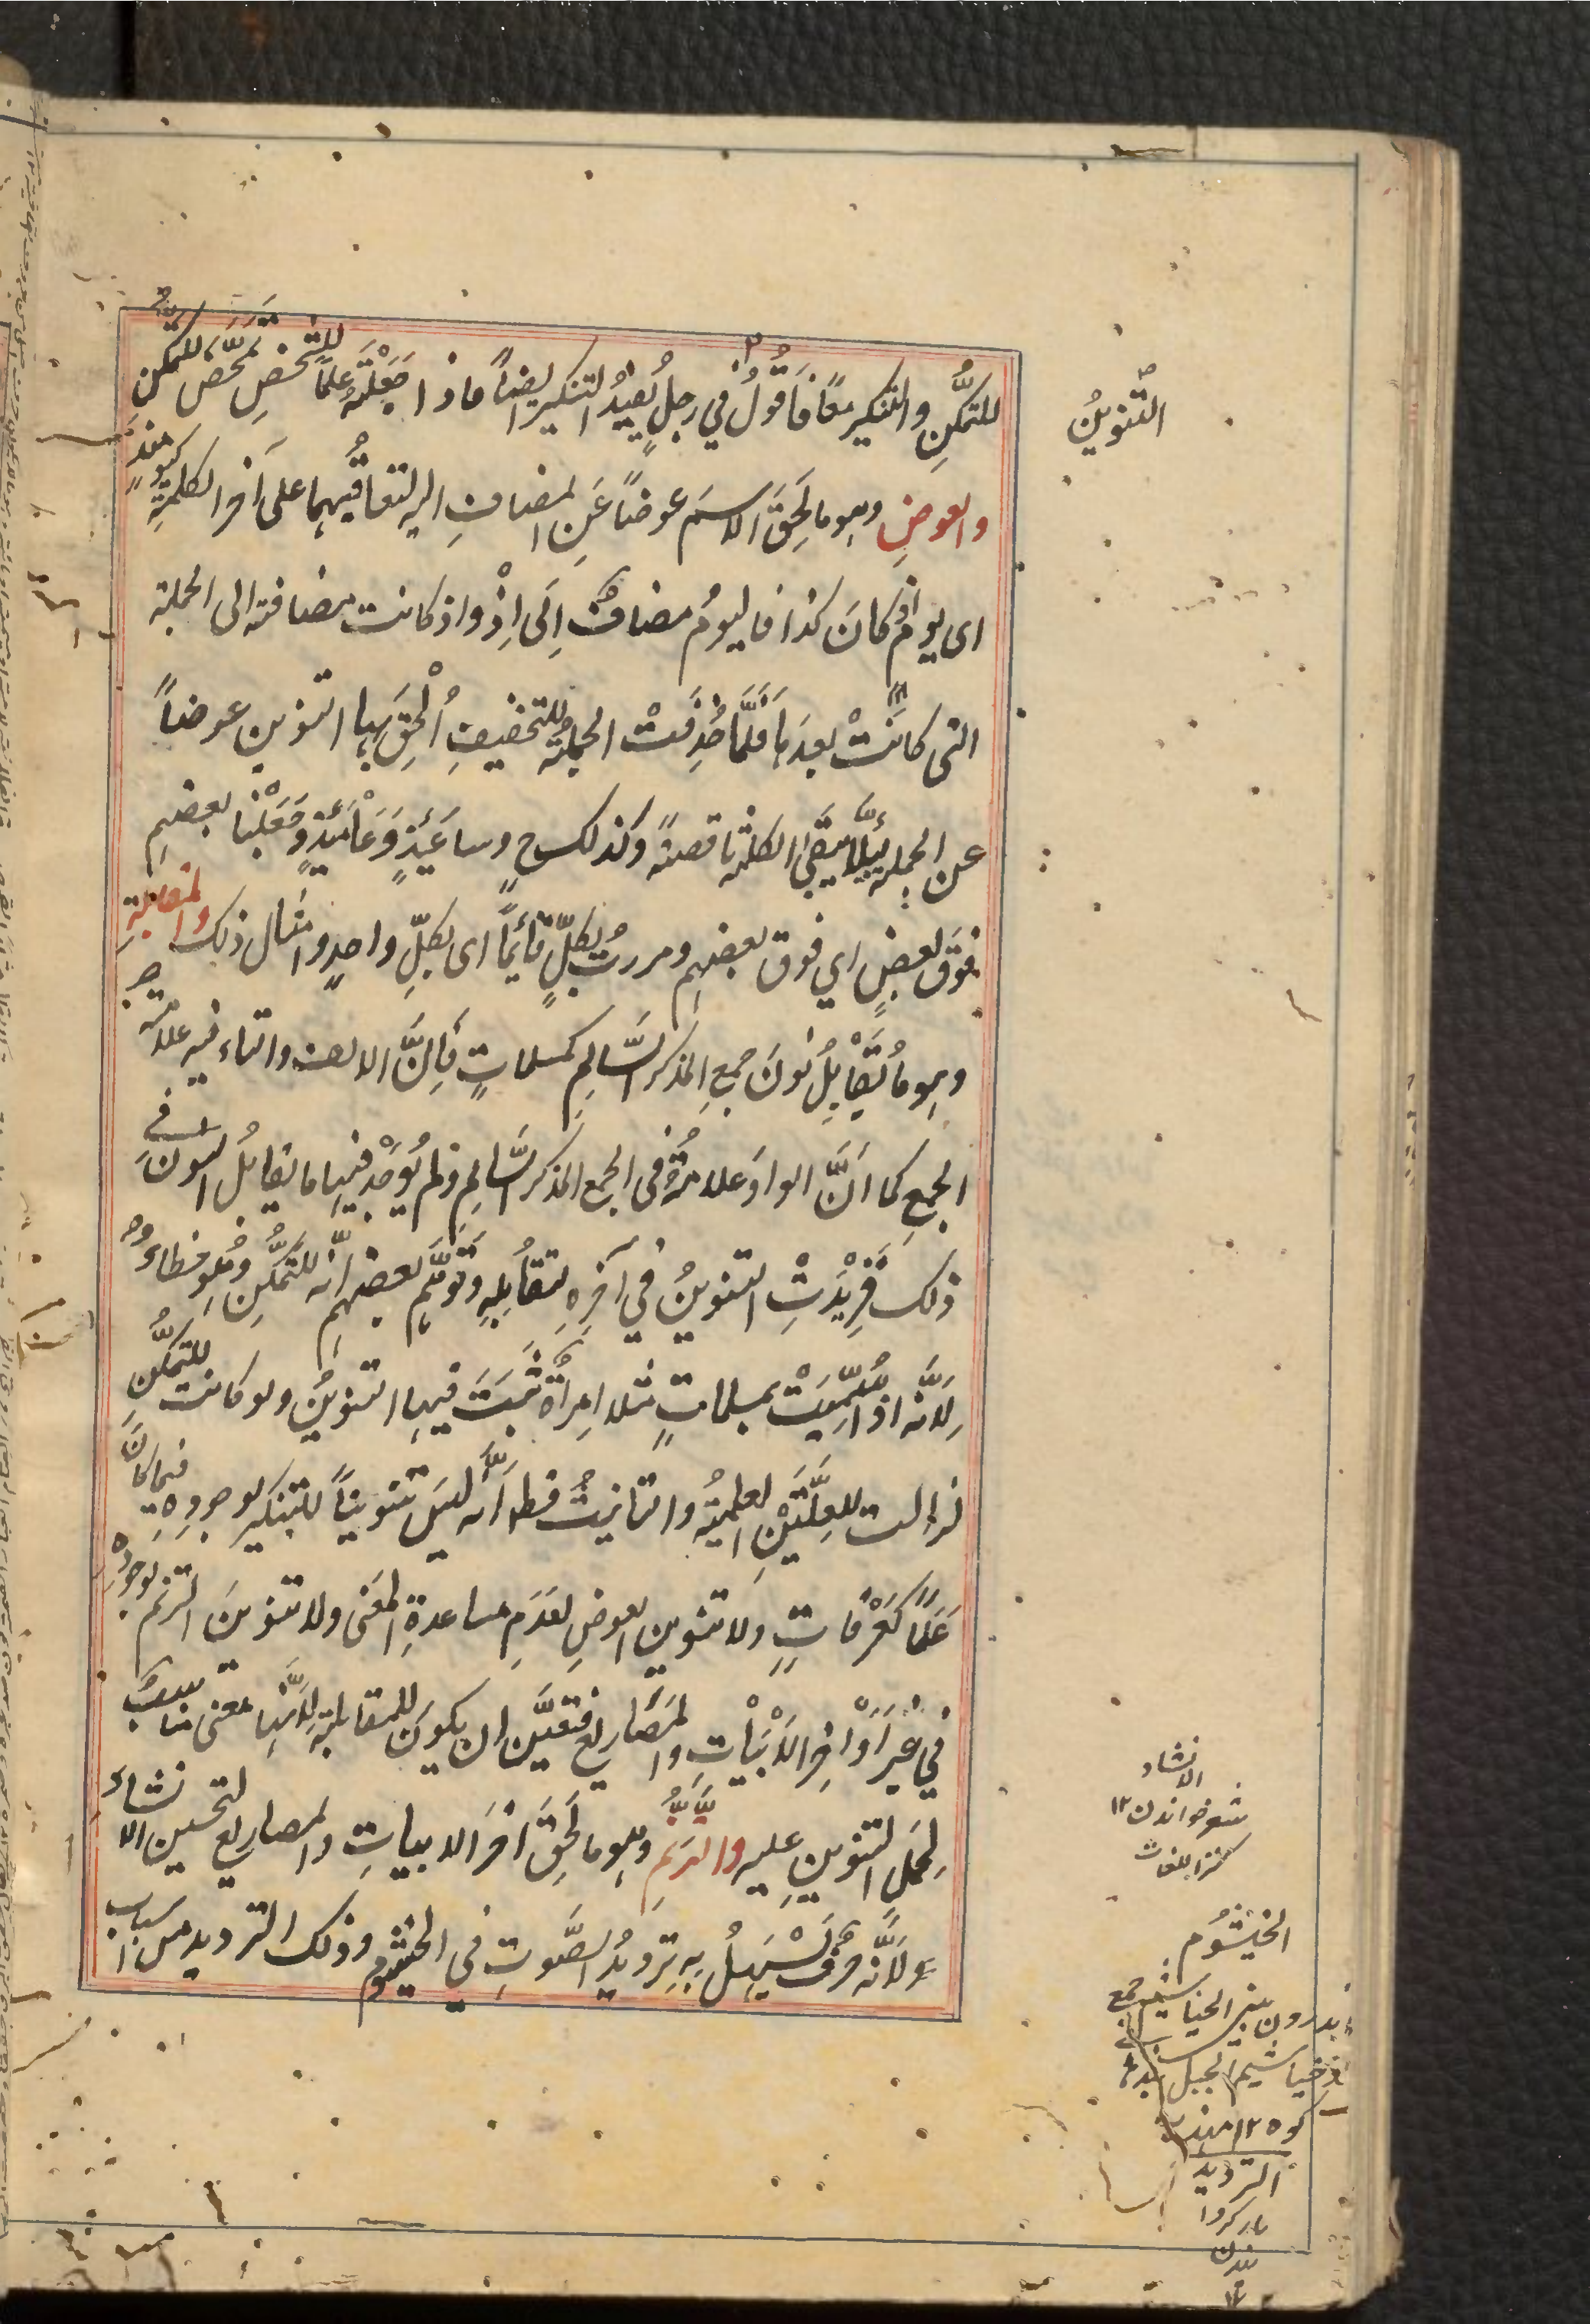 للتمكُّنِ والتنكير معًا فَاَقُولُ في رجلٍ يُفِيدُ التنكيرَ ايضاً فاذا جَعَلْتَهُ عَلَمًا للشخصِ تَمَحَّضَ للتمكّن
والعوضِ وهو ما لَحِقَ الاسمَ عوضاً عَنِ المضافِ اليه لتعاقُبِهما على آخر الكلمة كيومئذٍ
اى يوم اذ كانَ كذا فاليومُ مضافٌ اِلَى اِذْ واذ كانت مضافة الى الجملة
التى كانَتْ بعدَها فَلَمَّا حُذِفَتْ الجملةُ للتخفيفِ اُلْحِقَ بها التنوين عوضاً
عن الجملة لِئَلَّا يَبْقَى الكلمة ناقصةً وكذلك ح وساعَتَئِذٍ وَعَامَئِذٍ وجَعَلْنا بعضهم
فوقَ بعضٍ اي فوق بعضهم ومررتُ بكلٍّ قائماً اى بكلِّ واحدٍ وامثال ذلك والمقابلةِ
وهو ما يُقَابِلُ نونَ جمعِ المذكر السَّالِمِ كمسلماتٍ فَاِنَّ الالف والتاء فيه علامة
الجمعِ كما اَنَّ الواوَ علامةٌ فى الجمع المذكر السَّالِم ولم يُوجَدْ فيها ما يقابل النونَ فى
ذلك فَزِيْدَتِ التنوينُ في آخِرِهِ لتقابُلِهِ وتَوَهَّمَ بعضهم اَنَّه للتمكُّنِ وهُو خطاءٌ
لِاَنَّه اذا سُمِّيَتْ بمسلماتٍ مثلا امرأةٌ ثَبَتَ فيها التنوينُ ولو كانت للتمكُّنِ
لزالت للعِلَّتَيْنِ العلميةُ والتانيثُ فظهر اَنَّه ليسَ تنويناً للتنكير لوجودِهِ فيما كانَ
عَلَمًا كَعَرَفاتٍ ولا تنوين العوضِ لعدَمِ مساعدةِ المعنى ولا تنوينَ الترنم لوجودِهِ
فِي غَيْرِ اَوَاخِرِ الاَبْيَاتِ والمَصَارِيعِ فتعيَّن ان يكونَ للمقابلةِ لِاَنَّها معنى مناسبٌ
لحملِ التنوينِ عليه والترنُّمِ وهو ما لَحِقَ آخرَ الابياتِ والمصاريع لتحسين الانشاد
ولاَنَّه حرفٌ يَسْهُلُ به تردِيدُ الصَّوتِ في الخيشوم وذلك الترديد من اسباب
التنوينُ
الانشاد
شعر خواندن ١٢
كنز اللغات
الخيشُوم
اندرون بينى الخياشيم جمع
خياشيم الجبل
كوه ١٢ مهذب
الترديد
باز كردا
نيدن
١٢